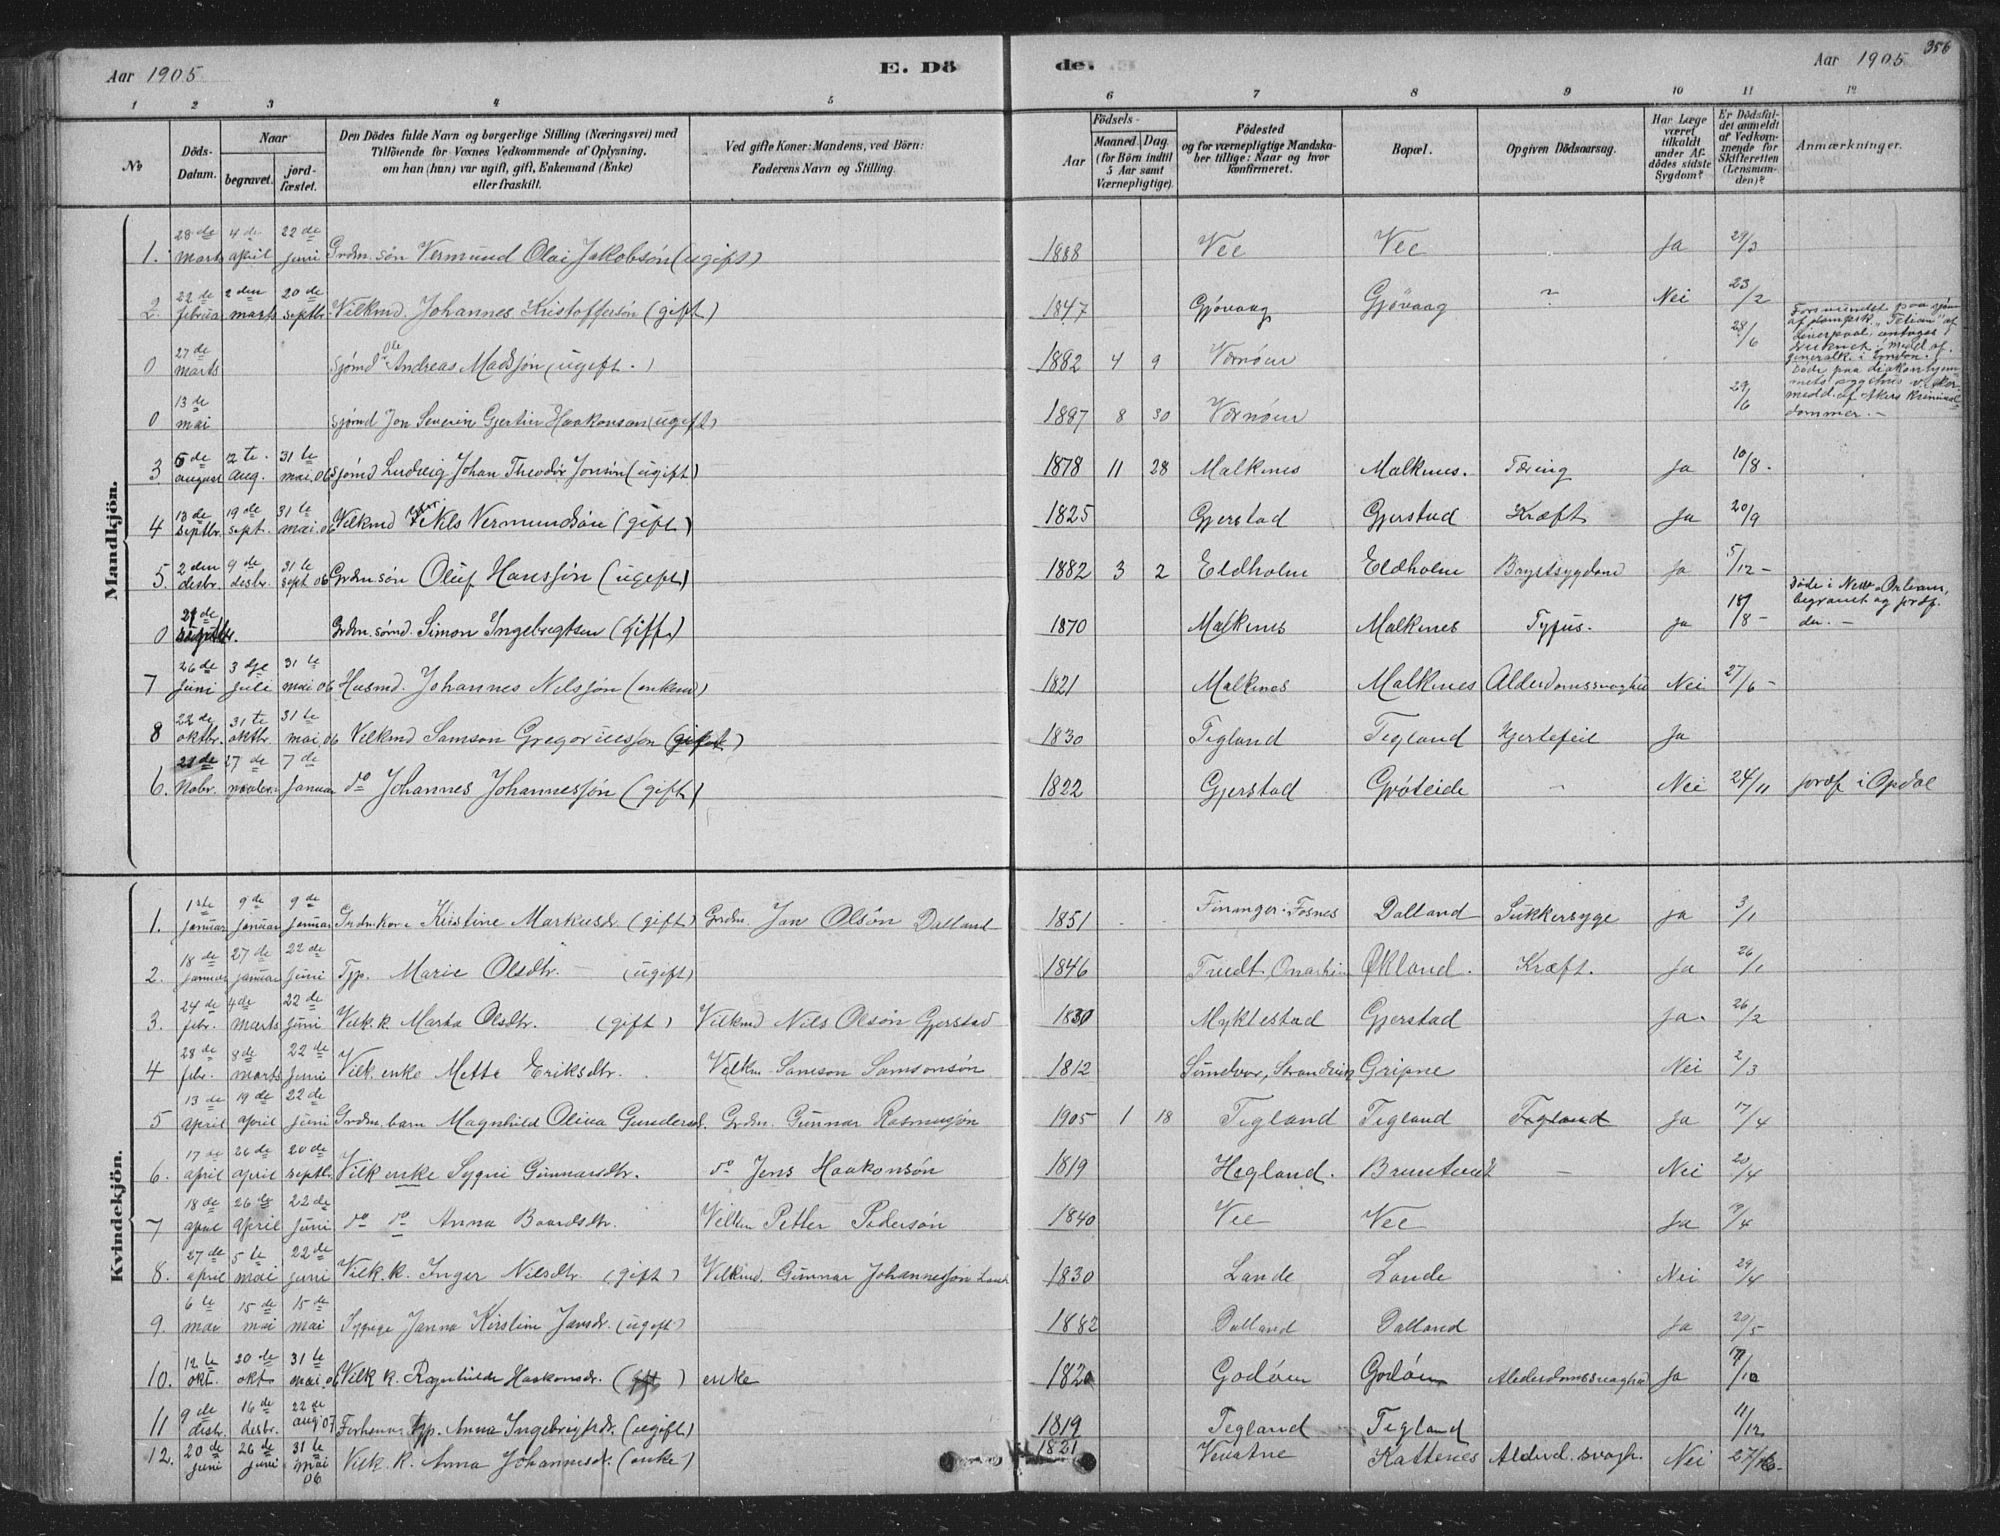 356
Aar 1905 E. Dö de. Aar 1905
1 2 3 4 5 6 7 8 9 10 11 12
No Döds-Datum. Naar begravet. jordfæstet. Den Dödes fulde Navn og borgerlige Stilling (Næringsvei) med Tilföiende for Voxnes Vedkommende af Oplysning, om han (hun) var ugift, gift, Enkemand (Enke) eller fraskilt. Ved gifte Koner: Mandens, ved Börn: Faderens Navn og Stilling. Födsels- Aar Maaned. Dag. (for Börn indtil 5 Aar samt Værnepligtige). Födested og for værnepligtige Mandskaber tillige: Naar og hvor konfirmeret. Bopæl. Opgiven Dödsaarsag. Har Læge været tilkaldt under Afdödes sidste Sygdom? Er Dödsfaldet anmeldt af Vedkommende for Skifteretten (Lensmanden)? Anmærkninger.
Mandkjön.
1. 28de marts 4de april 22de juni Grdm. søn Vermund Olai Jakobsøn (ugift) 1888 Vee Vee Ja 29/3
2. 22de februa 2den marts 20de septbr. Vilkmd. Johannes Kristoffersøn (gift) 1847 Gjøvaag Gjøvaag ? Nei 23/2
0 27de marts Sjømd Ole Andreas Madssøn (ugift.) 1882 4 9 Værnøen 28/6 Forsvundet paa af dampsk. af Liverpool, antages druknet. meld. af generalk. i London.
0 13de mai Sjømd Jon Severin Gjertin Haakonson (ugift) 1887 8 30 Værnøen 29/6 Døde paa diakonhjemmets sygehus meld. af Akers Kriminaldommer. —
3 5de august 12te aug. 31te mai 06 Sjømd Ludvig Johan Theodor Jonsøn (ugift) 1878 11 28 Malkenes Malkenes. Tæring Ja 10/8.
4 13de septbr. 19de sept. 31te mai 06 Vilkmd Nils Vermundsøn (gift) 1825 Gjerstad Gjerstad Kræft Ja 20/9
5 2den desbr. 9de desbr. 31te sept 06 Grdm søn Oluf Hanssøn (ugift) 1882 3 2 Eldholm Eldholm Brystsygdom Ja 5/12 —
0 21de Grdm. sømd. Simon Ingebregtsen (gift) 1870 Malkenes Malkenes Tyfus. Ja 18/8 — Døde i New-Orleans, begravet og jordf. der. —
7 26de juni 3dje juli 31te mai 06 Husmd. Johannes Nilssøn (enkemd) 1821 Malkenes Malkenes Alderdomssvaghed Nei 27/6 —
8 22de oktbr. 31te oktbr. 31te mai 06 Vilkmd Samson Gregoriussøn (gift) 1830 Tegland Tegland Hjertefeil Ja
6. 21de Nobr. 27de novbr. 7de Januar do Johannes Johannessøn (gift) 1822 Gjerstad Grøteide — Nei 24/11 jordf i Opdal
Kvindekjön.
1. 1ste januar 9de januar 9de januar Grdm. kone Kirstine Markusdr. (gift) Grdm Jan Olsøn Dalland 1851 Finanger. Fosnes Dalland Sukkersyge Ja 3/1
2. 18de januar 27de januar 22de juni Tjp. Marie Olsdtr. — (ugift) 1846 Tuedt, Onarheim Økland. Kræft. Ja 26/1
3. 24de febr. 4de marts 22de juni Vilk. k. Marta Olsdtr. (gift) Vilkmd Nils Olsøn Gjerstad 1830 Myklestad Gjerstad Ja. 26/2
4 28de febr. 8de marts 22de juni Vilk. enke Mette Eriksdtr. Vilkm Samson Samsonsøn 1812 Sundvor, Strandvik Gripne Nei 2/3
5 13de april 19de april 22de juni Grdm. barn Magnhild Oliva Gundersd. Grdm. Gunnar Rasmussøn 1905 1 18 Tegland Tegland Tegland Ja 17/4
6. 17de april 26de april 20de septb. Vilk enke Sygni Gunnarsdtr. do Jens Haakonsøn 1819 Hegland. — Nei 20/4
7 18de april 26de april 22de juni do do Anna Baardsdtr. Vilkm Petter Pedersøn 1840 Vee Vee Ja /4
8. 27de april 5te mai 22de juni Vilk. k. Inger Nilsdtr (gift) Vilkmd. Gunnar Johannessøn Lande 1830 Lande Lande Nei 29/4
9. 6te mai 15de mai 15de mai Sypige Janna Kirstine Jansdr. (ugift) 1882 Dalland Dalland Ja 20/5
10. 12te okt. 20de okt. 31te mai 06 Vilk k. Ragnhilde Haakonsdr. (gift) enke 1820 Godøen Godøen Alderdomssvaghed Ja /10
11 9de desbr. 16de desbr. 22de aug 07 Forhenv. tjp. Anna Ingebrigtsdr. (ugift) 1819 Tegland Tegland 11/12
12. 20de juni 26de juni 31te mai 06 Vilk. k. Anna Johannesd. (enke) 1821 Kattenes Alderd. svagh. Nei 27/6.